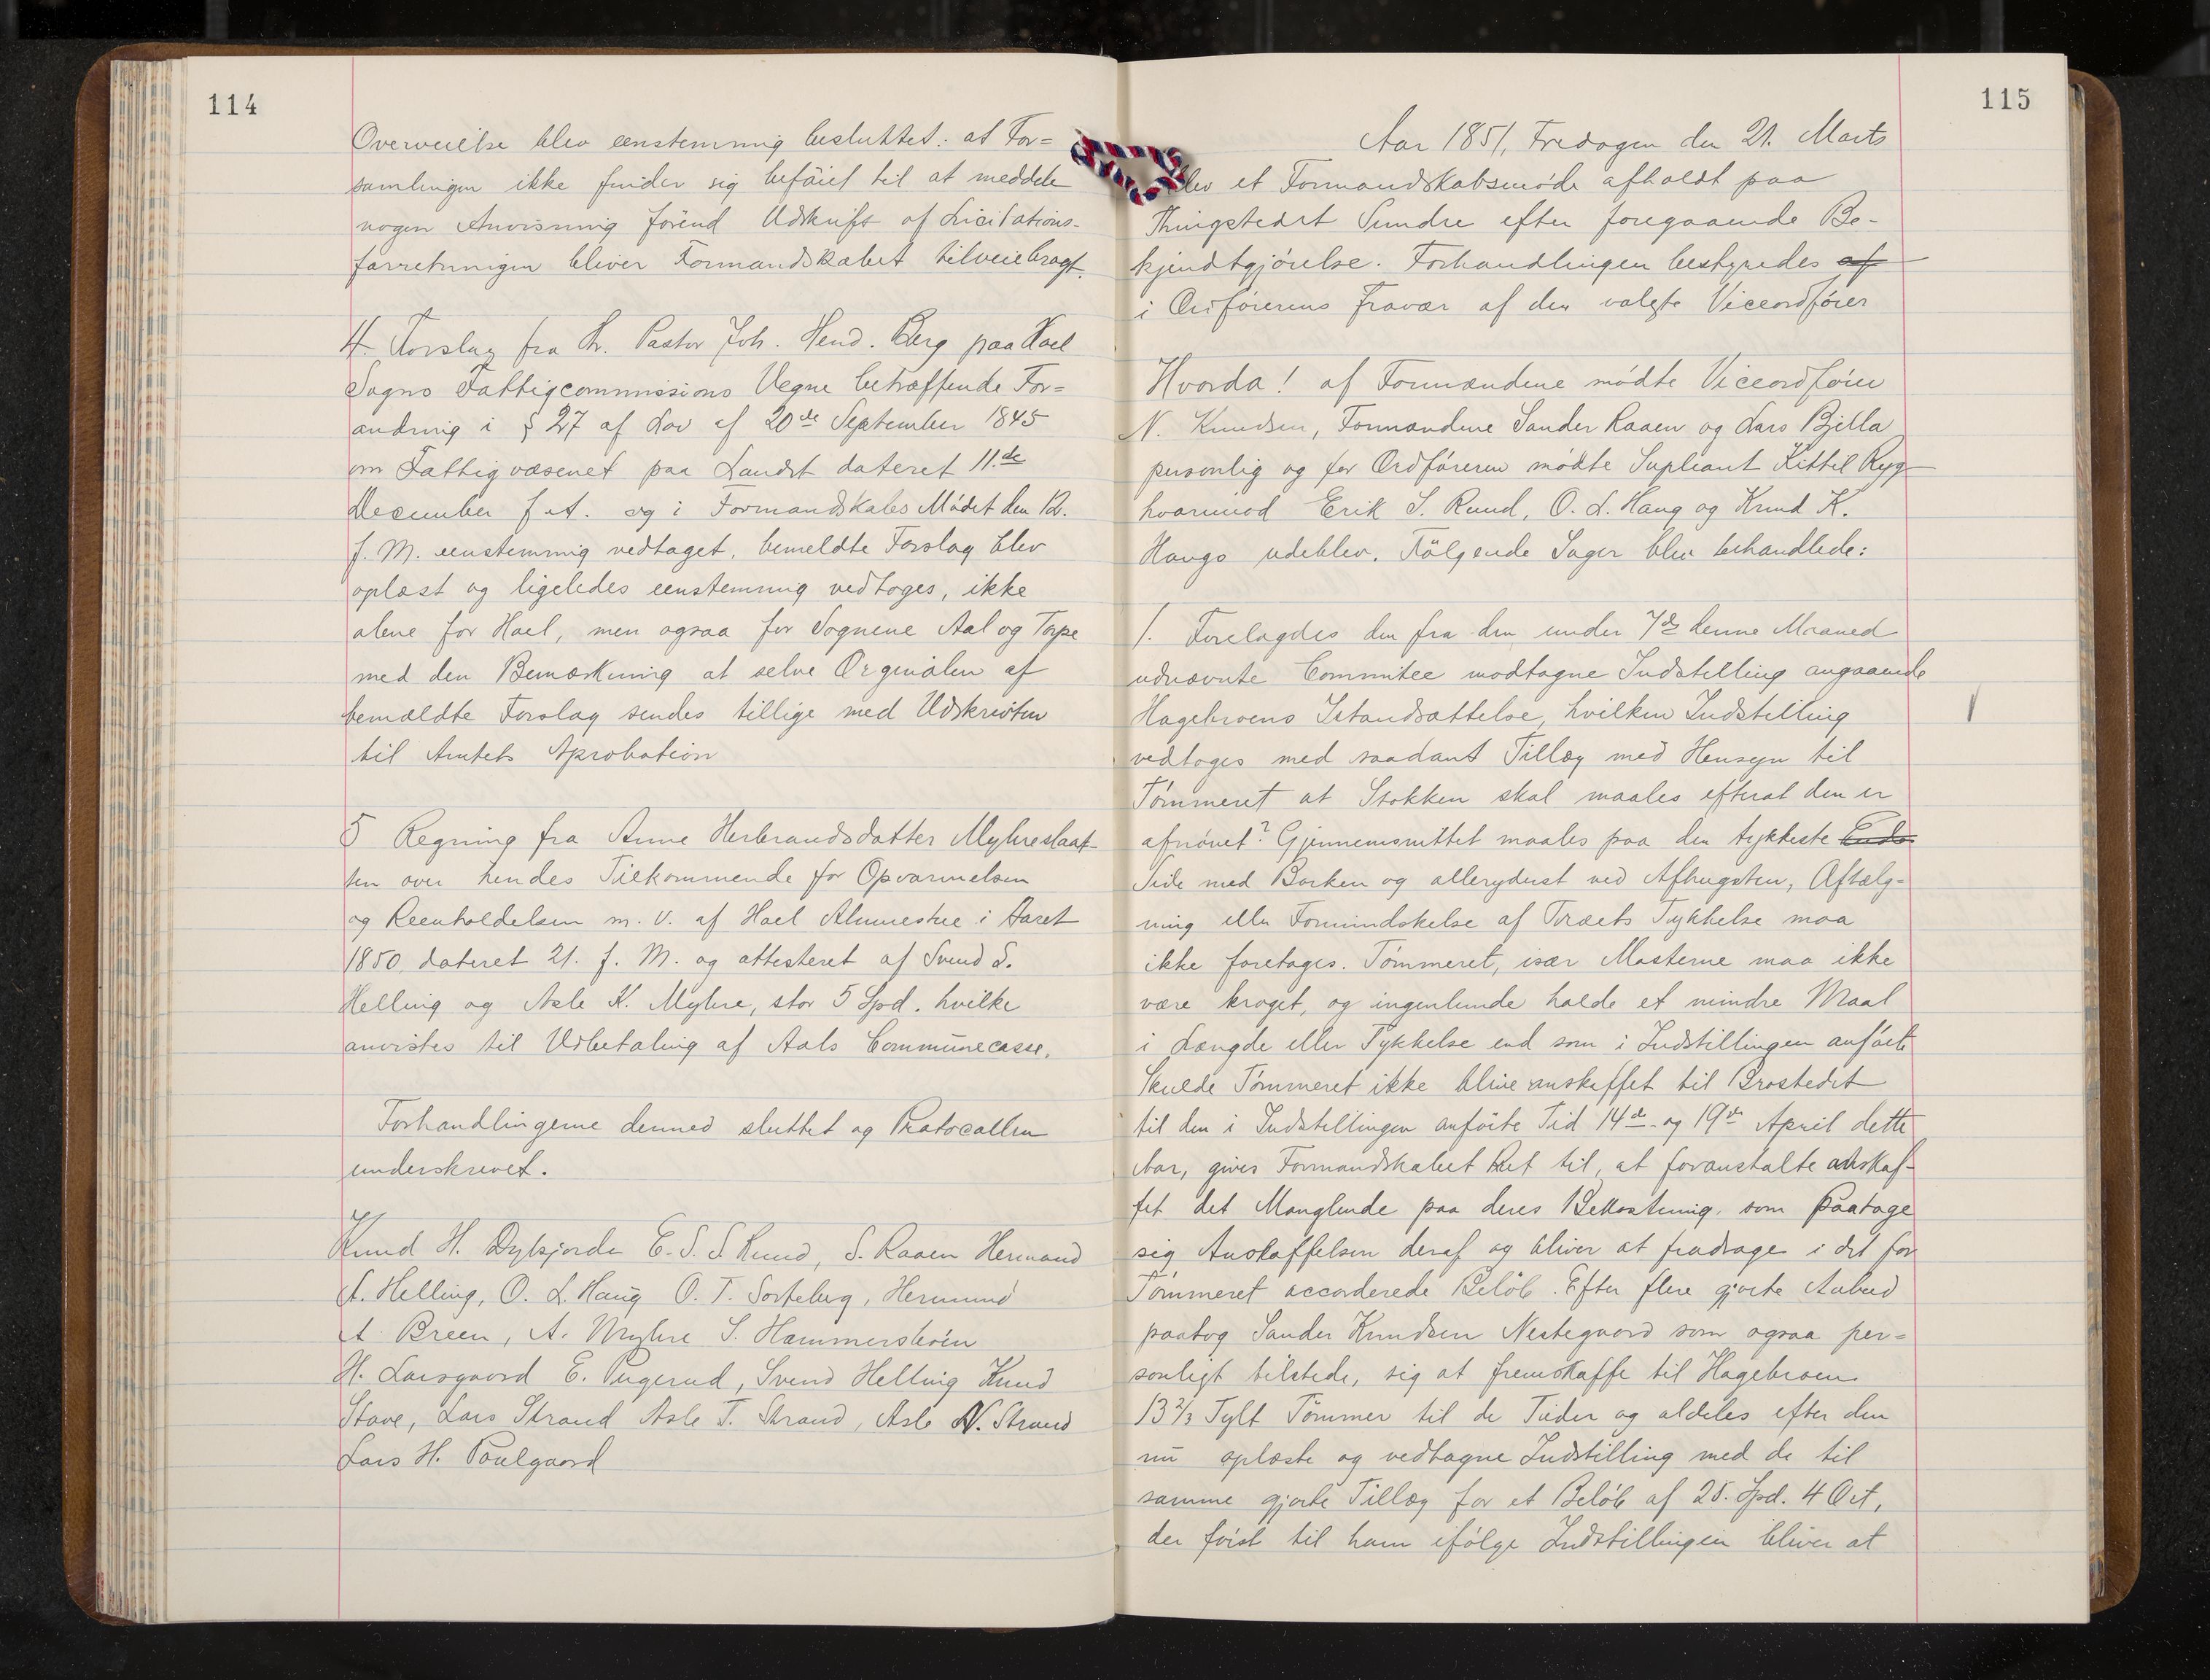 114
Overveielse blev eenstemmig besluttet: at For=
samlingen ikke finder sig beføiet til at meddele
nogen Anvisning førend Udskrift af Licitations-
forretningen bliver Formandskabet tilveiebragt.
4. Forslag fra Hr. Pastor Joh. Hend. Berg paa Hoel
Sogns Fattigcommissions Vegne betræffende For=
andring i § 27 af Lov af 20de September 1845
om Fattigvæsenet paa Landet dateret 11.de
December f. A. og i Formandskabs Mødet den 12.
f. M. eenstemmig vedtaget, bemeldte Forslag blev
oplæst og ligeledes eenstemmig vedtoges, ikke
alene for Hoel, men ogsaa for Sognene Aal og Torpe
med den Bemærkning at selve Orginalen af
bemældte Forslag sendes tillige med Udskrivten
til Amtets Aprobation
5 Regning fra Anne Herbrandsdatter Myhreslaat-
ten over hendes Tilkommende for Opvarmelsen
og Reenholdelsen m. v. af Hoel Almuestue i Aaret
1850, dateret 21. f. M. og attesteret af Svend S.
Helling og Asle K. Myhre, stor 5 Spd. hvilke
anvistes til Udbetaling af Aals Communecasse.
Forhandlingerne dermed sluttet og Protocollen
underskrevet.
Knud H. Dykjorde E. S. S. Ruud, S. Raaen Hermand
A. Helling, O. L. Haug O. T. Sorteberg, Hermund
A. Breen, A. Myhre S. Hammersbøen
H. Larsgaard E. Pugerud, Svend Helling Knud
Stave, Lars Strand Asle T. Strand, Asle N. Strand
Lars H. Poulgaard
115
Aar 1851, Fredagen den 21. Marts
blev et Formandskabsmøde afholdt paa
Thingstedet Sundre efter foregaaende Be-
kjendtgjørelse. Forhandlingen bestyredes af
i Ordførerens fravær af den valgte Viceordfører
Hvorda! af Formændene mødte Viceordfører
N. Knudsen, Formændene Sander Raaen og Lars Bjella
personlig og for Ordføreren mødte Supleant Kittil Ryg
hvorimod Erik S. Ruud, O. L. Haug og Knud K.
Haugo udeblev. Følgende Sager blev behandlede:
1. Forelagdes den fra den under 7de denne Maaned
udnævnte Commitee modtagne Indstilling angaaende
Hagebroens Istandsættelse, hvilken Indstilling
vedtoges med saadant Tillæg med Hensyn til
Tømmeret at Stokken skal maales efterat den er
afrøvet? Gjennemsnittet maales paa den tykkeste Ende
Side med Borken og allerydust ved Afhugsten, Aftælg=
ning eller Formindskelse af Træets Tykkelse maa
ikke foretages. Tømmeret, især Masterne maa ikke
være kroget, og ingenlunde holde et mindre Maal
i Længde eller Tykkelse end som i Indstillingen anførte
Skulde Tømmeret ikke blive anskaffet til Brostedet
til den i Indstillingen anførte Tid 14de og 19de April dette
Aar, gives Formandskabet Ret til, at foranstalte anskaf-
fet det Manglende paa deres Bekostning, som paatage
sig Anskaffelsen deraf og bliver at fradrage i det for
Tømmeret accorderede Beløb. Efter flere gjorte Anbud
paatog Sander Knudsen Nestegaard som ogsaa per=
sonligt tilstede, sig at fremskaffe til Hagebroen
13 2/3 Tylt Tømmer til de Tider og aldeles efter den
nu oplæste og vedtagne Indstilling med de til
samme gjorte Tillæg for et Beløb af 25. Spd. 4 Ort,
der først til ham ifølge Indstillingen bliver at